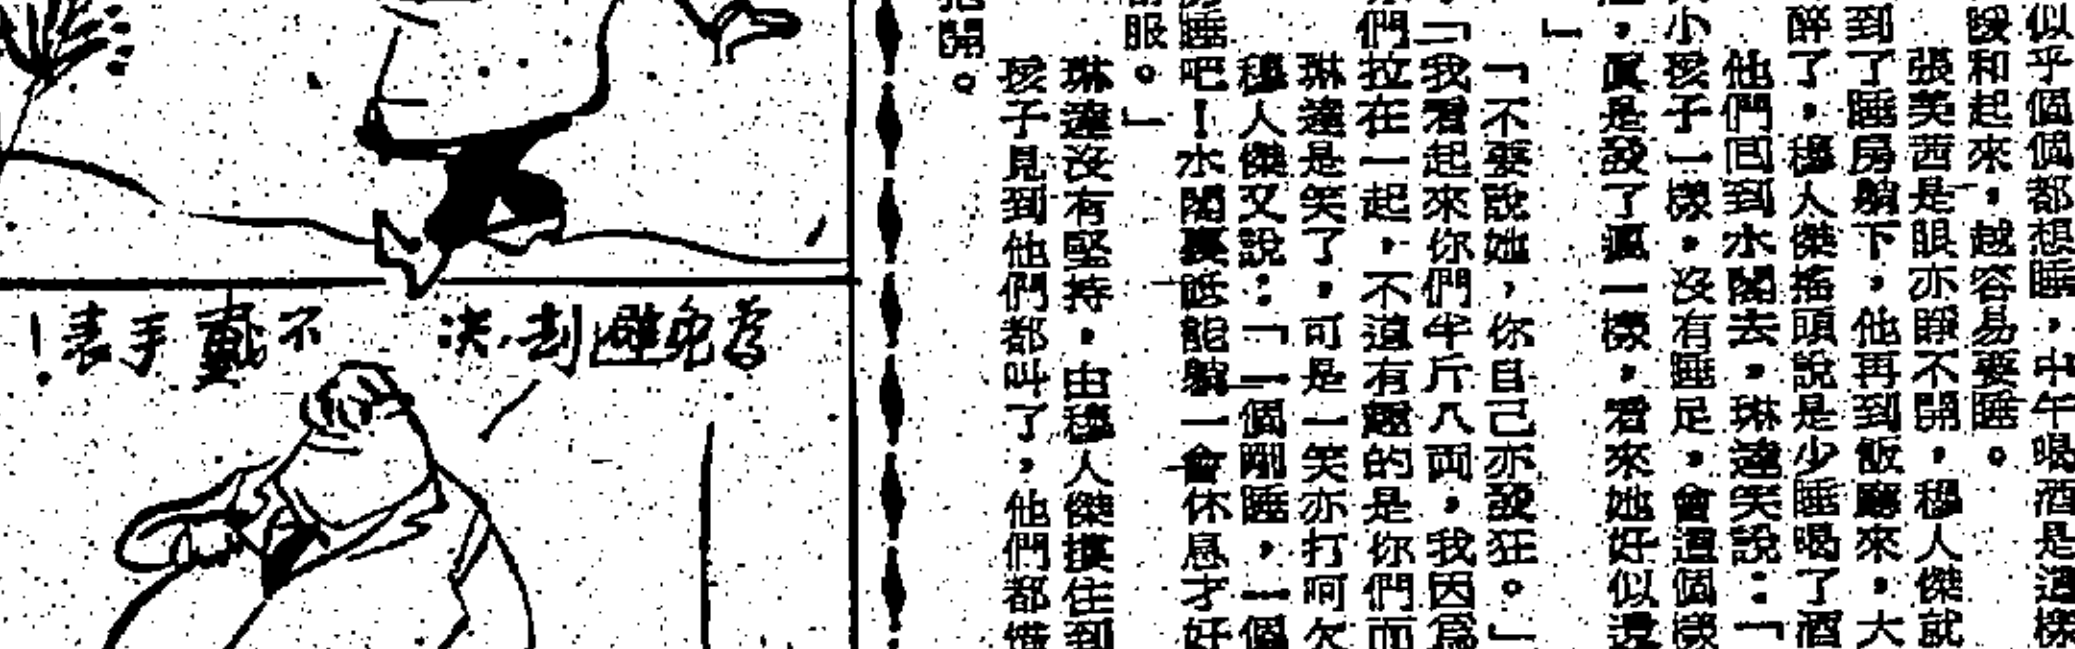 似乎個個都想睡，中午喝酒是這樣
暖和起來，越容易要睡。
張美茜是眼亦睜不開，穆人傑就
到了睡房躺下，他再到飯廳來，大
醉了，穆人傑搖頭說是少睡喝了酒
他們回到水閣去，琳達笑說：「
小孩子一樣，沒有睡足，會這個樣
，真是發了瘋一樣，看來她好似還
」
「不要說她，你自己亦發狂。」
「我看起來你們半斤八両，我因為
們拉在一起，不過有趣的是你們而
琳達是笑了，可是一笑亦打呵欠
穆人傑又說：「一個剛睡，一個
睡吧！水閣裏能躺一會休息才好
服。」
琳達沒有堅持，由穆人傑摟住到
孩子見到他們都叫了，他們都
開。
為免避刦决
不戴手表！